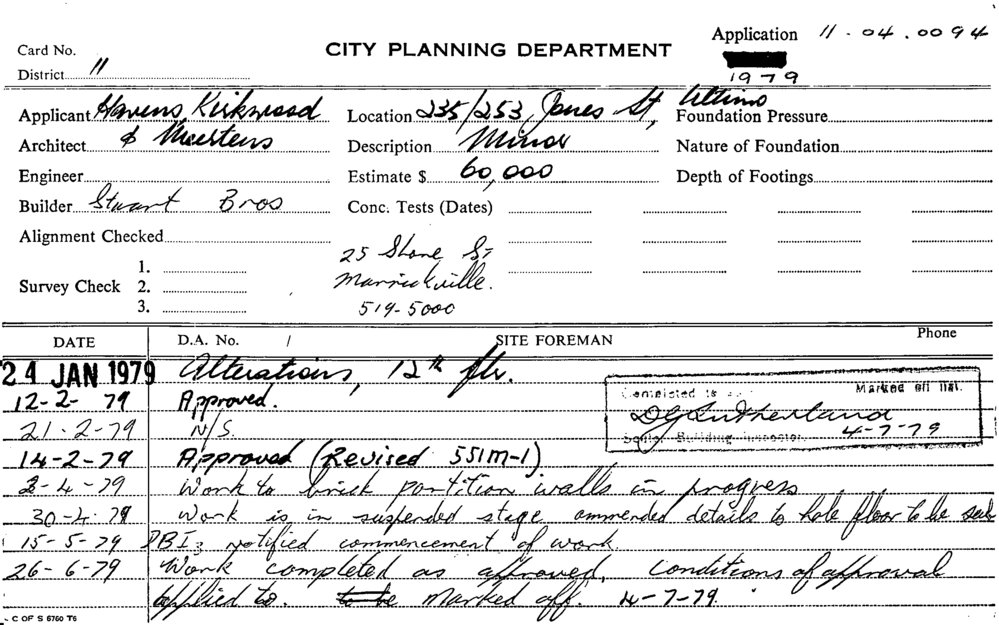 Card No.
CITY PLANNING DEPARTMENT
Application 11.04.0094
District 11
1979
Applicant Havens, Kirkwood
Location 235/253, Jones St, Ultimo
Foundation Pressure
Architect & Meertens
Description Minor
Nature of Foundation
Engineer
Estimate $ 60,000
Depth of Footings
Builder Stuart Bros
Conc. Tests (Dates)
Alignment Checked
25 Shone St
Marrickville.
519-5000
Survey Check
1.
2.
3.
DATE
D.A. No. /
SITE FOREMAN
Phone
24 JAN 1979 Alterations, 12th flr.
12-2-79 Approved.
21-2-79 N/S.
14-2-79 Approved (Revised 551M-1)
Marked off list.
DG Sutherland
Senior Building Inspector. 4-7-79
3-4-79 Work to brick partition walls in progress
30-4-79 Work is in suspended stage ammended details to hole floor to be
15-5-79 notified commencement of work.
26-6-79 Work completed as approved, conditions of approval
applied to. to be Marked off. 4-7-79.
C OF S 6760 T6